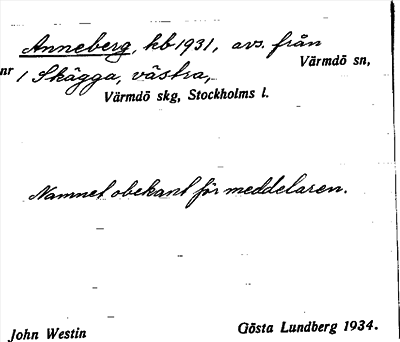 Anneberg, kb 1931, avs. från
Värmdö sn,
nr 1 Skägga, västra,
Värmdö skg, Stockholms l.
Namnet obekant för meddelaren.
John Westin
Gösta Lundberg 1934.